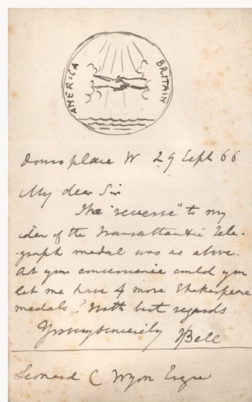 AMERICA BRITAIN
place W 29 Sept 66
My dear Sir
The "reverse" to my
idea of the Transatlantic Tele-
graph medal was as above.
At your convenience could you
let me have 4 more Shakespere
medals? With best regards
Yours sincerely JBell
Leonard C Wyon Esqre